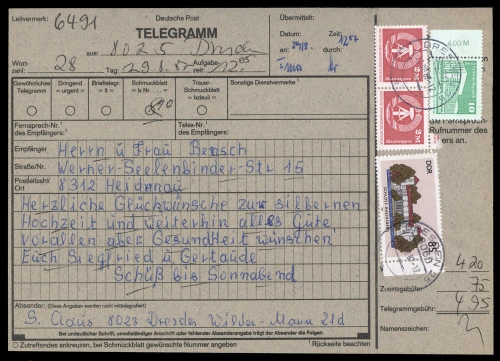 Leitvermerk: 6491
Deutsche Post
TELEGRAMM
Übermittelt:
aus: 8025 Dresden
Datum: Zeit:
an: 29/8. 1257
Wortzahl: 28 Tag: 29.8.87 Aufgabezeit: 12.05
Gewöhnliches Telegramm
Dringend = urgent =
Brieftelegr. = lt =
Schmuckblatt = lx Nr. ... =
Trauer-Schmuckblatt = lxdeuil =
Sonstige Dienstvermerke
Fernsprech-Nr. des Empfängers:
Telex-Nr. des Empfängers:
Empfänger Herrn u Frau Bensch
Straße/Nr. Werner-Seelenbinder-Str 15
Postleitzahl/Ort 8312 Heidenau
Herzliche Glückwünsche zur silbernen
Hochzeit und weiterhin alles Gute,
vorallen aber Gesundheit wünschen
Euch Siegfried u Gertaude
Schüß bis Sonnabend
Absender: (Diese Angaben werden nicht mittelegrafiert)
S. Claus 8023 Dresden Wilder-Mann 21d
Bei undeutlicher Anschrift oder fehlender Absenderangabe trägt der Absender die Folgen.
Zutreffendes ankreuzen, bei Schmuckblatt gewünschte Nummer angeben.
Rückseite beachten
Rufnummer des
ers an.
2M
2M
10
4,00 M
DDR
85
4 20
75
Zuschlagsgebühr:
Telegrammgebühr: 4.95
Namenszeichen: